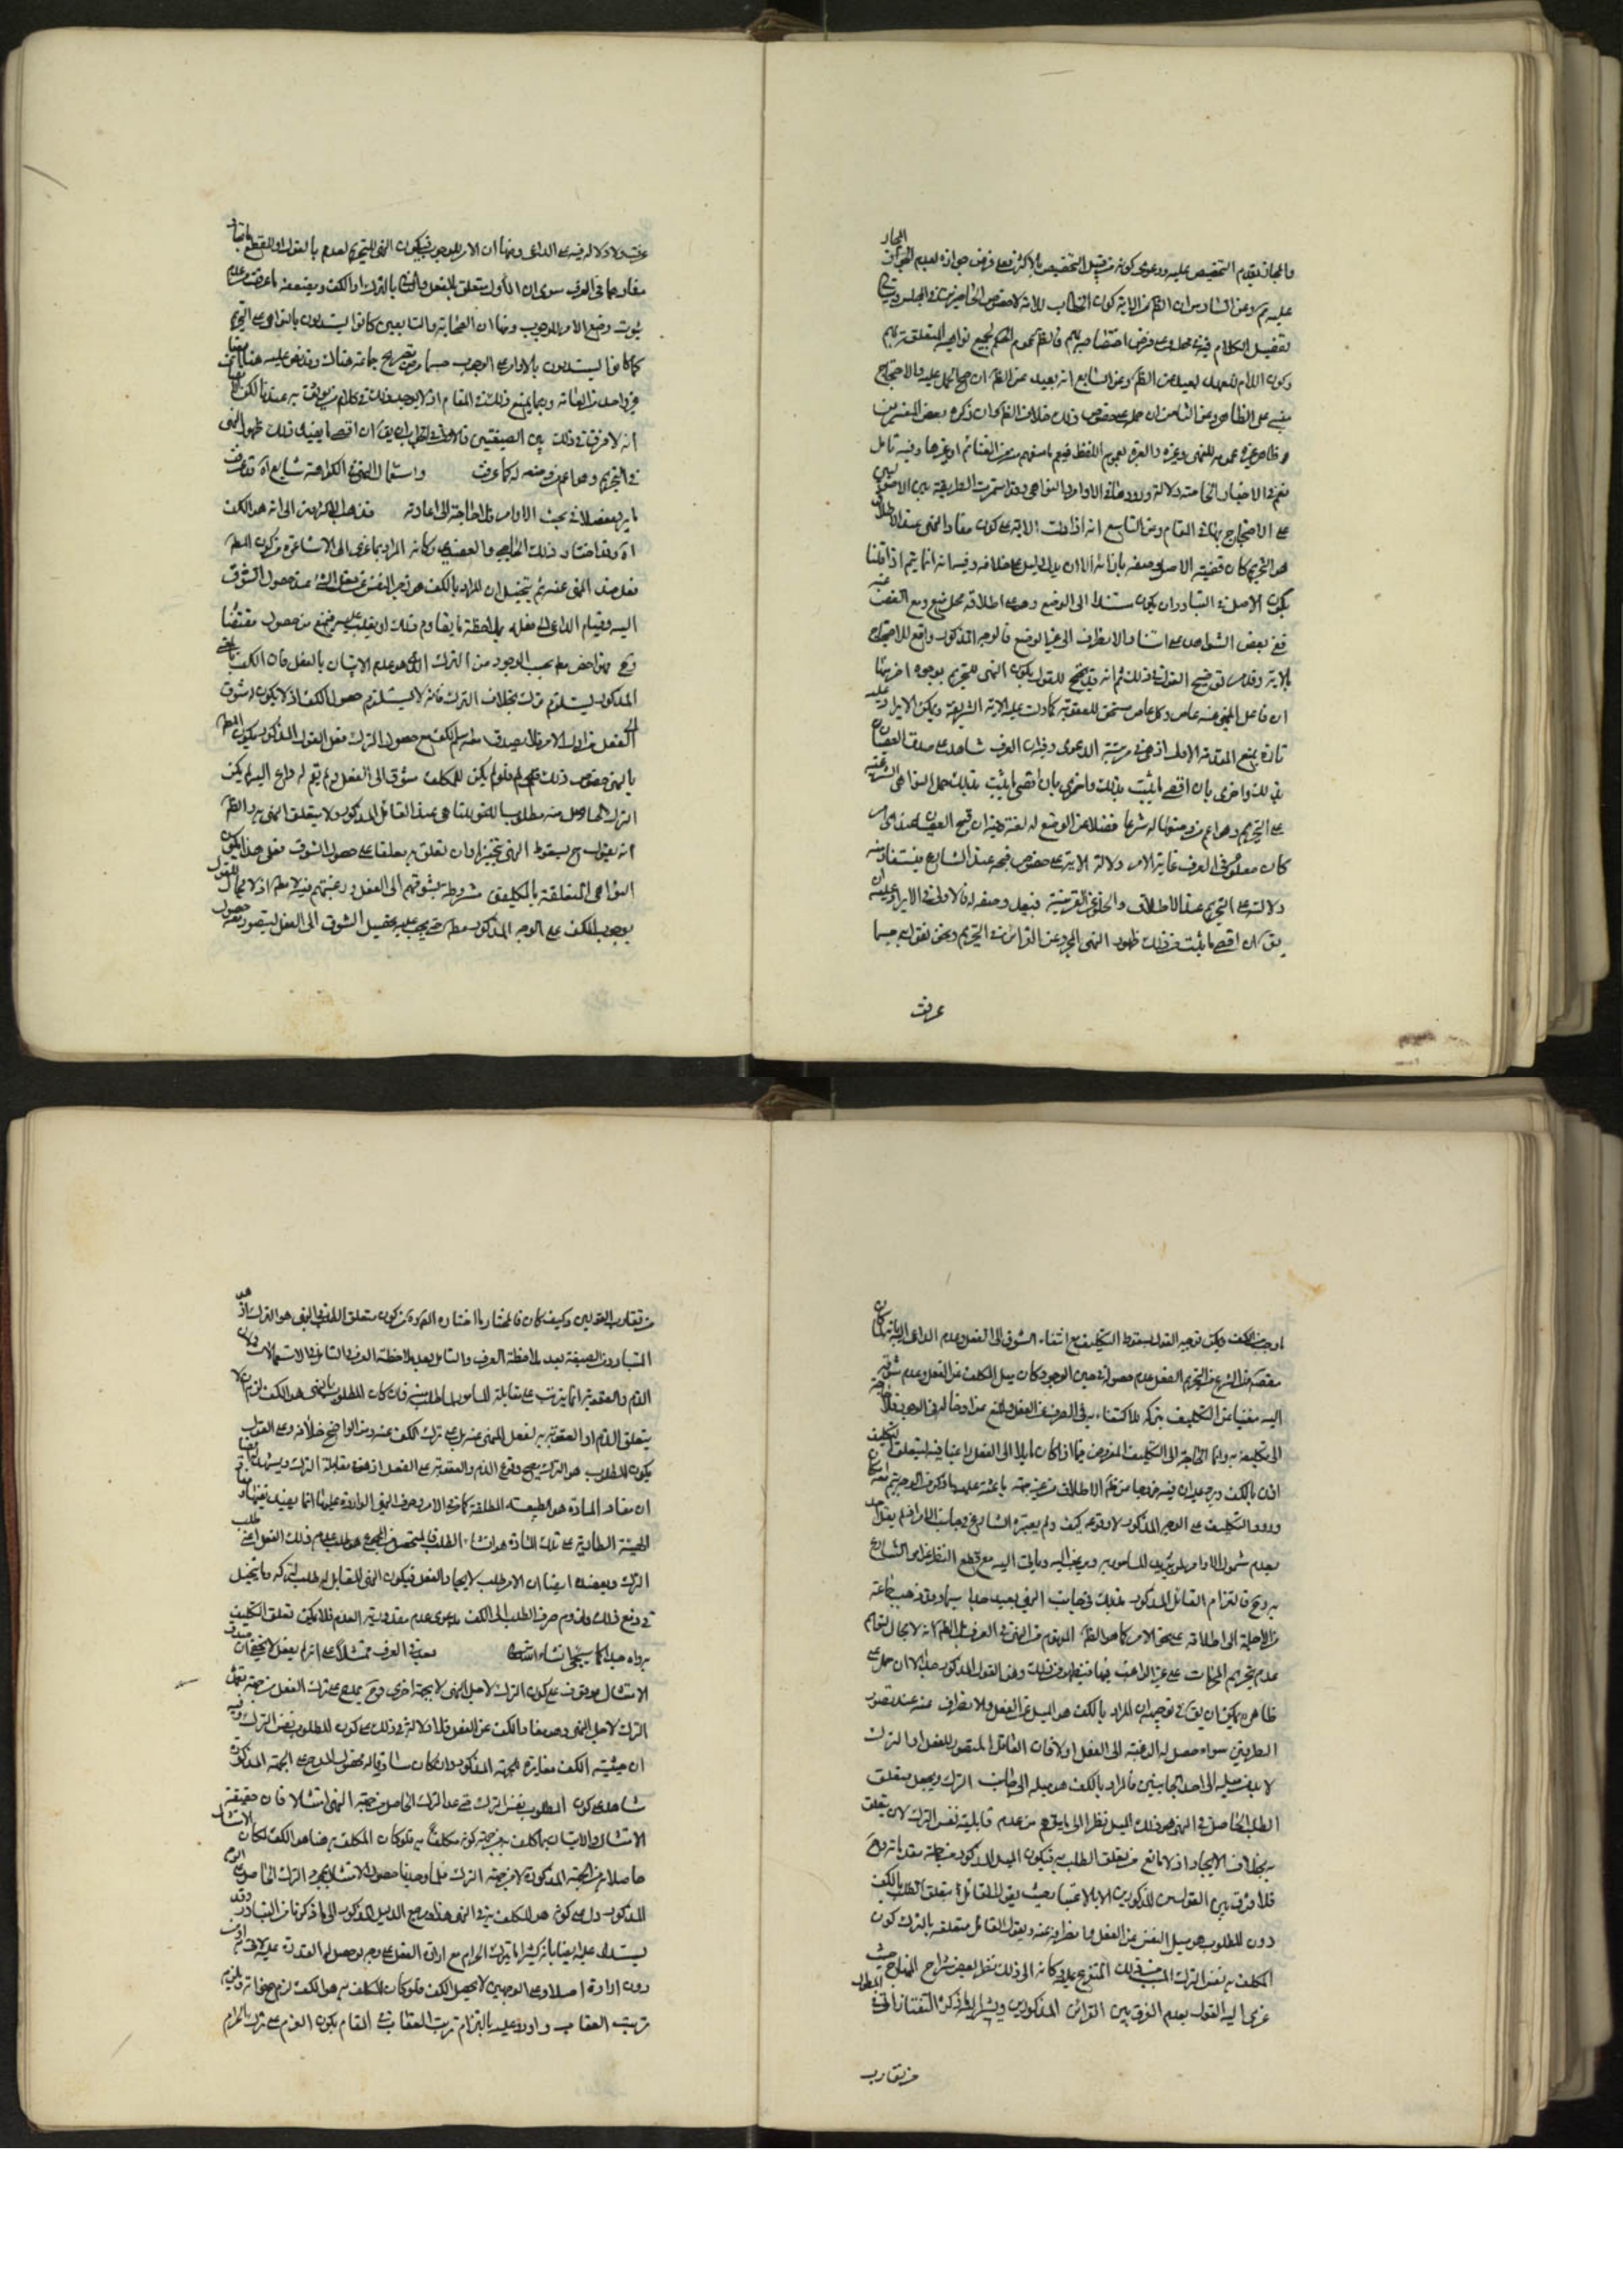 والمجاز يقدم التخصيص عليه ودعوى كونه من قبيل التخصيص بالاكثر فعلى فرض جوازه لعدم المجاز
عليه ثم وعن السادس ان الظ من الاية كون الخطاب للامة لا خصوص الحاضرين في المجلس
تفصيل الكلام فيه في محله وعلى فرض اختصاصه بهم فالظ عموم الحكم لجميع نواهيه المتعلقة بهم
وكون اللام للعهد بعيد عن الظ وعن السابع انه بعيد عن الظ ان صح الحمل عليه والاحتجاج
مبني على الظاهر وعن الثامن ان حمله على خصوص ذلك خلاف الظ وان ذكره بعض المفسرين
وظاهر غيره عمومه للنهي وغيره والعبرة بعموم اللفظ فيعم ما منعهم منه من الغنائم او غيرها وفيه تامل
نعم في الاخبار الخاصة دلالة وورودها في الاوامر والنواهي وقد استمرت الطريقة بين
على الاحتجاج بها في المقام وعن التاسع انه اذا دلت الاية على كون مفاد النهي عند الاطلاق
هو التحريم كان قضية الاصل وضعه بازائه الا ان يدل دليل على خلافه وفيه انه انما يتم اذا قلنا
بكون الاصل في التبادر ان يكون مستندا الى الوضع وهو على اطلاقه محل منع ومع الغض عنه
ففي بعض الشواهد على استناد الانصراف الى غير الوضع فالوجه المذكور دافع للاحتجاج
بالاية وقد مر توضيح القول في ذلك ثم انه قد يحتج للقول بكون النهي للتحريم بوجوه اخر منها
ان فاعل المنهي عنه عاص وكل عاص مستحق للعقوبة كما دلت عليه الاية الشريفة ويمكن الايراد عليه
تارة بمنع المقدمة الاولى اذ هي في مرتبة الدعوى وفيه ان العرف شاهد على صدق العصيان
بذلك واخرى بان اقصى ما يثبت بذلك واخرى بان اقصى ما يثبت بذلك حمل النواهي الشرعية
على التحريم وهو اعم من وضعها له شرعا فضلا عن الوضع له لغة وفيه ان قبح العصيان
كان معلوما في العرف غاية الامر دلالة الاية على خصوص قبحه عند الشارع فيستفاد منه
دلالته على التحريم عند الاطلاق والخلو عن القرينة فيفيد وضعه له فالاولى في الايراد عليه ان
يق ان اقصى ما يثبت من ذلك ظهور النهي المجرد عن القرائن في التحريم ونحن نقول به حسبما
عرفت
عرفت ولا دلالة فيه على المدعى ومنها ان الامر للوجوب فيكون النهي للتحريم لعدم
مفادهما في العرف سوى ان الاول متعلق بالفعل والثاني بالترك او الكف ويضعفه ما عرفت من عدم
ثبوت وضع الامر للوجوب ومنها ان الصحابة والتابعين كانوا يستدلون بالنواهي على التحريم
كما كانوا يستدلون بالاوامر على الوجوب حسبما مر تصريح جماعة هناك وقد نص عليه هنا ايضا
غير واحد من العامة وربما يمنع ذلك في المقام اذ لا يوجد ذلك في كلام من يوثق به عندنا لكن
انه لا فرق في ذلك بين الصيغتين فالاولى في الجواب ان يق ان اقصى ما يفيد ذلك ظهور النهي
في التحريم وهو اعم من وضعه له كما عرفت واستعمال النهي في الكراهة شايع اه قد عرفت
ما يرد مفصلا في بحث الاوامر فلا حاجة الى اعادته فذهب الاكثرون الى انه هو الكف
اه وقد اختار ذلك الحاجبي والعضدي وكانه المراد بما عزي الى الاشاعرة من كون المط
فعل ضد المنهي عنه ثم يتخيل ان المراد بالكف هو زجر النفس عن فعل الشيء عند حصول الشوق
اليه وقيام الداعي الى فعله بملاحظة ما يقاوم ذلك او يغلب عليه فيمنع من حصول مقتضاها
وهو اخص مط بحسب الوجود من الترك الذي هو عدم الاتيان بالفعل فان الكف بالمعنى
المذكور يستلزم الترك بخلاف الترك فانه لا يستلزم حصول الكف اذ لا يكون له شوق
الى الفعل من اول الامر فلا يصدق معه اسم الكف مع حصول الترك فعلى القول المذكور يكون المط
بالنهي خصوص ذلك فلو لم يكن للمكلف شوق الى الفعل ولم يقم له داع اليه لم يكن
الترك الحاصل منه مطلوبا للناهي عند القائل المذكور ولا يتعلق النهي به والظ
انه يقول ح بسقوط النهي تنجيزا وان تعلق به معلقا على حصول الشوق فعلى هذا يكون
النواهي المتعلقة بالمكلفين مشروطة بشوقهم الى الفعل ورغبتهم فيه لا مط اذ لا مجال للقول
بوجوب الكف على الوجه المذكور مط حتى يجب عليه تحصيل الشوق الى الفعل ليتصور معه حصول
ما وجب للكف ويمكن توجيه القول بسقوط التكليف مع انتفاء الشوق الى الفعل وعدم الداعي اليه بانه لما كان
مقصود الشرع من التحريم الفعل عدم حصوله في حيز الوجود كان ميل المكلف عن الفعل وعدم شوقه
اليه مغنيا عن التكليف بتركه للاكتفاء به في الصرف عن الفعل والمنع من ادخاله في الوجود فلا حاجة
الى تكليفه به وانما الحاجة الى التكليف المفروض فيما اذا كان مايلا الى الفعل راغبا فيه فيتعلق التكليف
اذن بالكف ويرد عليه ان فيه خروجا عن ظاهر الاطلاق من غير جهة باعثة عليه وما ذكر من الوجه
ورود التكليف على الوجه المذكور لا وقوعه كيف ولم يعتبره الشارع في جانب الامر فلم يقل احد
بعدم شمول الاوامر لمن يميل للمامور به ويرغب اليه وياتي اليه مع قطع النظر عن امر الشارع
به وح فالتزام القائل المذكور بذلك في جانب النهي بعيد جدا سيما وقد ذهب جماعة
من الاجلة الى اطلاقه على نحو الامر كما هو الظ المفهوم من النهي في العرف بل الظ انه لا مجال للقول
بعدم تحريم المحرمات على غير الراغب فيها فيظهر من ذلك وهن القول المذكور جدا الا ان حمله على
ظاهره يمكن ان يق في توجيهه ان المراد بالكف هو الميل عن الفعل والانصراف عنه عند تصور
الطرفين سواء حصل له الرغبة الى الفعل اولا فان العاقل المتصور للفعل او الترك
لا بد من ميله الى احد الجانبين فالمراد بالكف هو ميله الى جانب الترك ويجعل متعلق
الطلب الحاصل في النهي هو ذلك الميل نظرا الى ما يتوهم من عدم قابلية نفس الترك لان يتعلق
به بخلاف الايجاد اذ لا مانع من تعلق الطلب به فيكون الميل المذكور من جملة مقدماته وح
فلا فرق بين القولين المذكورين الا بالاعتبار حيث يقول القائل في متعلق الطلب بالكف
دون المطلوب هو ميل النفس عن الفعل وانصرافه عنه ويقول القائل بتعلقه بالترك كون
المكلف به نفس الترك المسبب من ذلك المتفرع عليه وكانه الى ذلك نظر بعض شراح المنهاج حيث
عزى اليه القول بعدم الفرق بين القولين المذكورين ويشير اليه ما ذكره التفتازاني في المطول
من تقارب
من تقارب القولين وكيف كان فالمختار ما اختاره المص من كون متعلق الطلب في النهي هو الترك اذ هو
المتبادر من الصيغة بعد ملاحظة العرف والتامل بعد ملاحظة العرف والتامل في الاستعمالات ولان
الذم والعقوبة انما يترتب على مخالفة المامور لما طلب منه فان كان المطلوب بالنهي هو الكف لزم ان لا
يتعلق الذم او العقوبة بفعل المنهي عنه بل على ترك الكف عنه ومن الواضح خلافه وعلى القول
بكون المطلوب هو الترك يصح وقوع الذم والعقوبة على الفعل اذ هو في مقابلة الترك ويشهد له ايضا
ان مفاد المادة هو الطبيعة المطلقة كما في الامر وحرف النهي الواردة عليها انما يفيد نفيها ومفاد
الهيئة الطارئة على تلك المادة هو انشاء الطلب فالمتحصل من المجموع هو طلب عدم ذلك الفعل اعني
الترك ويعضده ايضا ان الامر طلب لايجاد الفعل فيكون النهي المقابل له طلب لتركه وما يتخيل
في دفع ذلك ولزوم صرف الطلب الى الكف بدعوى عدم مقدورية العدم فلا يمكن تعلق التكليف
به واه جدا كما سيجئ انشاء الله تعالى بعد في العرف ممتثلا اه على انه لم يفعل لا يخفى ان
الامتثال موقوف على كون الترك لاجل النهي لا بجهة اخرى وح يمدح على ترك الفعل من جهة
الترك لاجل النهي وهو مفاد الكف عن الفعل فلا دلالة في ذلك على كون المطلوب نفس الترك وفيه
ان حيثية الكف مغايرة للجهة المذكورة وان كان مساوقا له فحصول المدح على الجهة المذكورة
شاهد على كون المطلوب نفس الترك حتى عد الترك الحاصل من جهة النهي امتثالا فان حقيقة
الامتثال هو الاتيان بما كلف به من جهة كونه مكلفا به فلو كان المكلف به هنا هو الكف لكان الامتثال
حاصلا من الجهة المذكورة لا من جهة الترك فلما وجدنا حصول الامتثال بمجرد الترك الحاصل على الوجه
المذكور دل على كونه هو المكلف به في النهي هذا ومرجع الدليل المذكور الى ما ذكرناه من التبادر وقد
يستدل عليه ايضا بانه كثيرا ما يترك الحرام مع ارادة الفعل على وجه لو حصل له القدرة عليه لاتى به او من
دون ارادة اصلا وعلى الوجهين لا يحصل الكف فلو كان المكلف به هو الكف لزم ح فواته ويلزمه
ترتب العقاب واورد عليه بالتزام ترتب العقاب في المقام بكون العزم على ترك الحرام